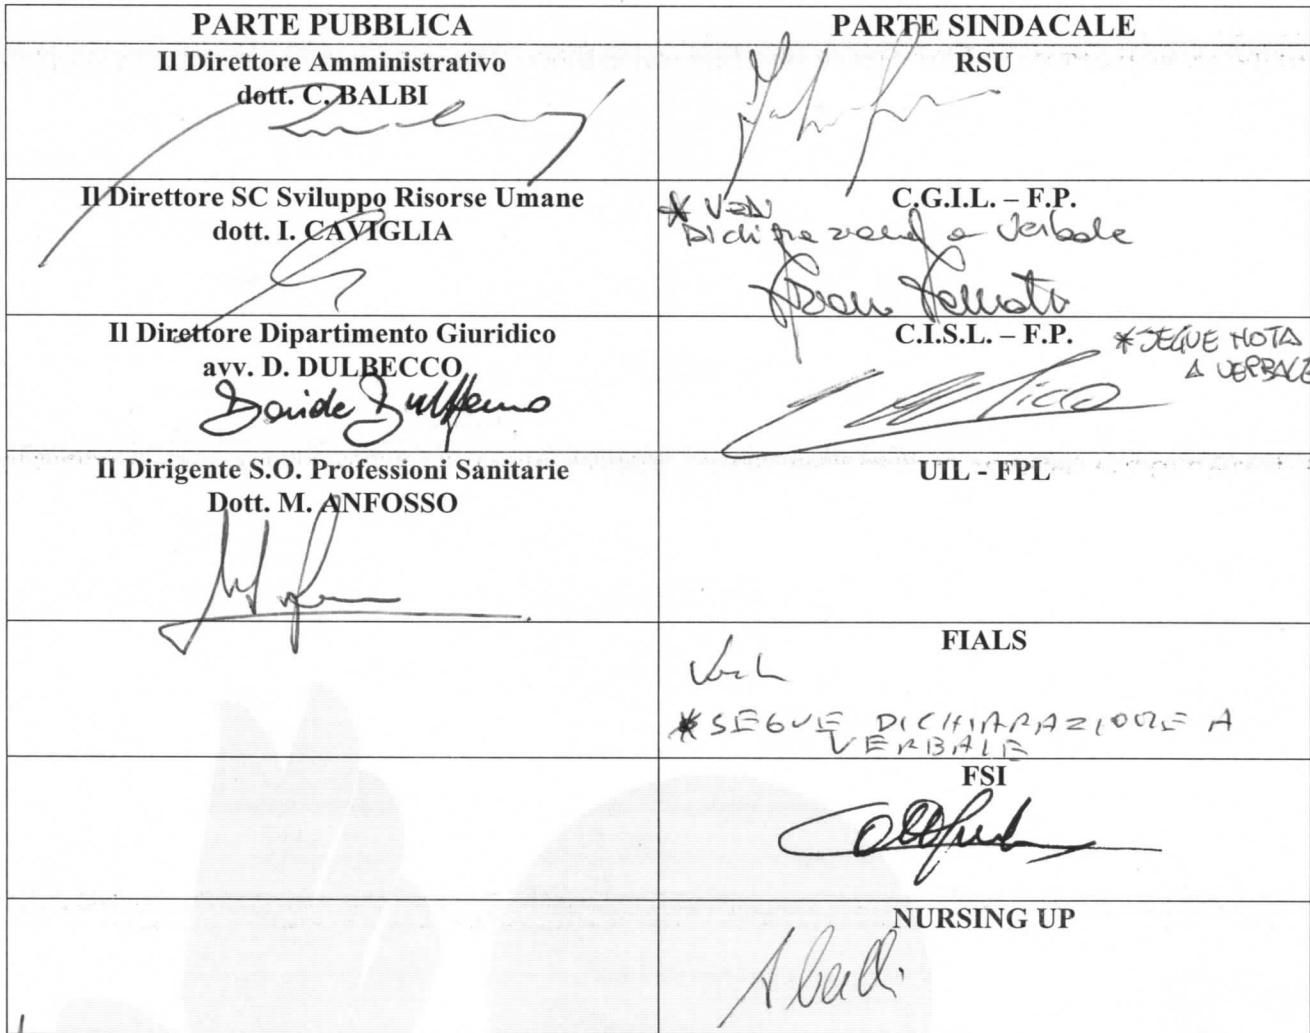 PARTE PUBBLICA
PARTE SINDACALE
Il Direttore Amministrativo
dott. C. BALBI
RSU
Il Direttore SC Sviluppo Risorse Umane
dott. I. CAVIGLIA
C.G.I.L. – F.P.
* a Verbale
Il Direttore Dipartimento Giuridico
avv. D. DULBECCO
Davide Dulbecco
C.I.S.L. – F.P.
* SEGUE NOTA
A VERBALE
Il Dirigente S.O. Professioni Sanitarie
Dott. M. ANFOSSO
UIL - FPL
FIALS
* SEGUE DICHIARAZIONE A
VERBALE
FSI
NURSING UP